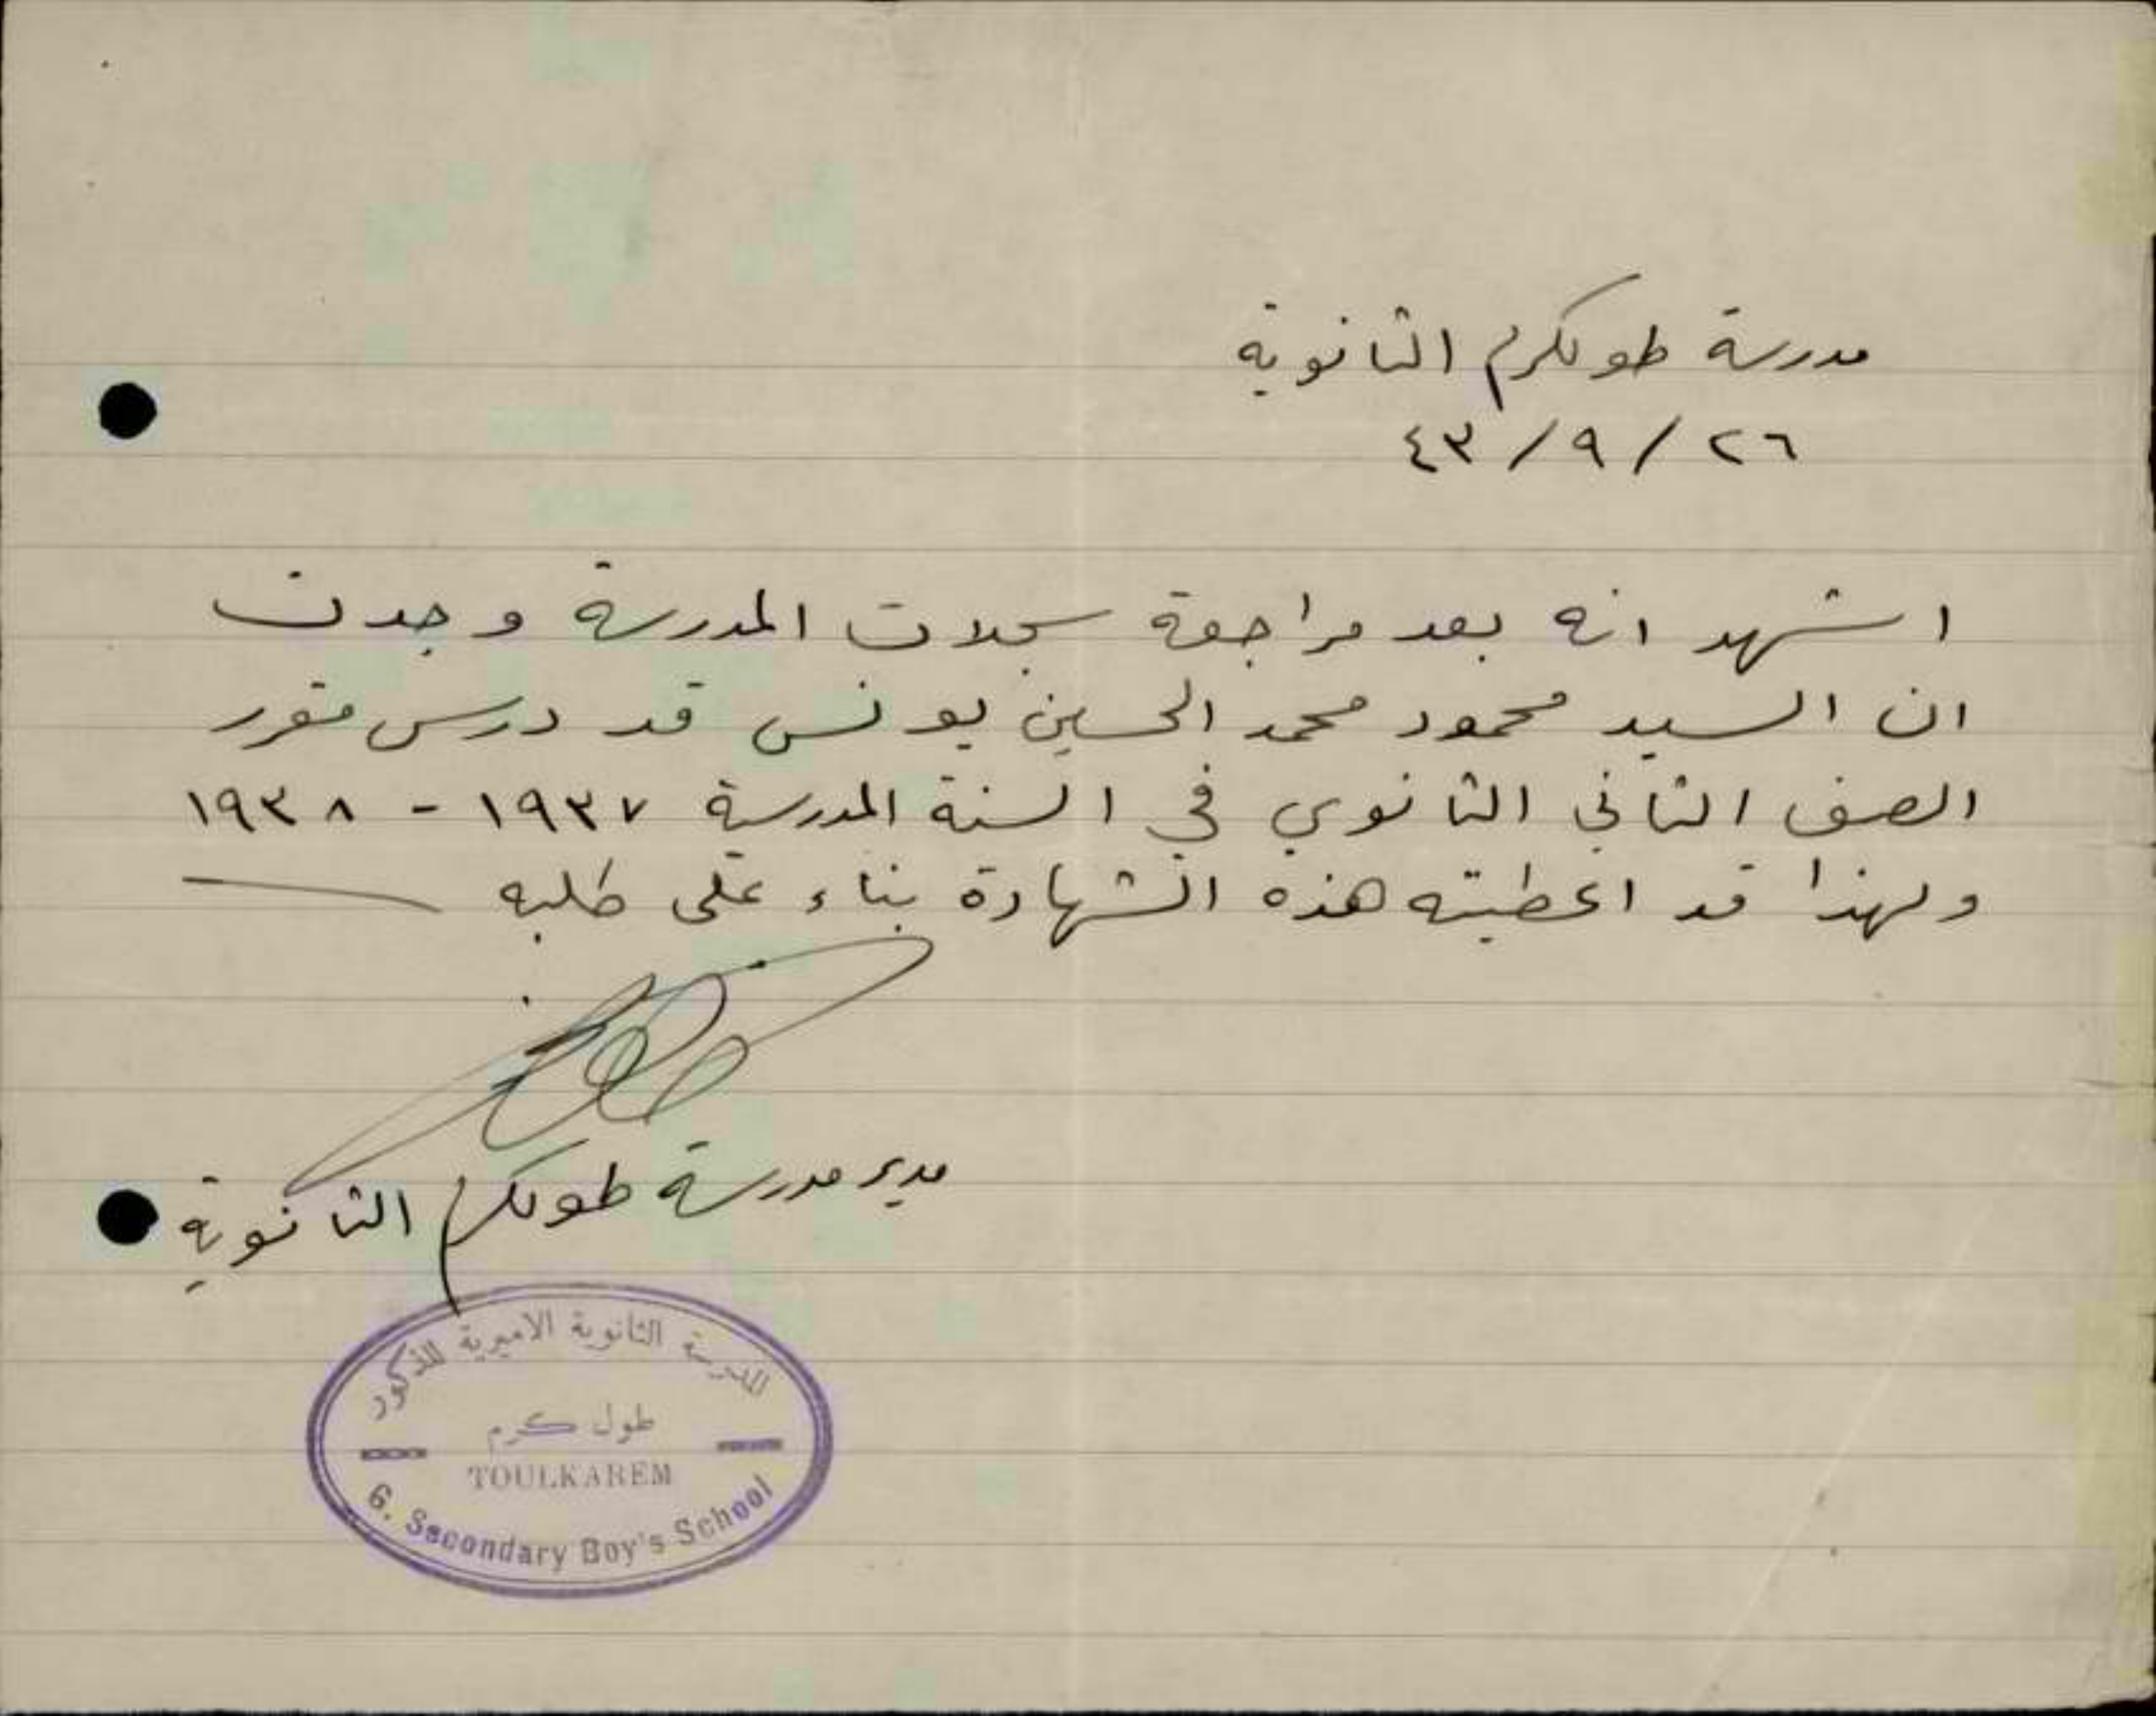 مدرسة طولكرم الثانوية
٢٦ / ٩ / ٤٣
اشهد انه بعد مراجعة سجلات المدرسة وجدت
ان السيد محمود محمد الحسين يونس قد درس مقرر
الصف الثاني الثانوي في السنة المدرسية ١٩٣٧ - ١٩٣٨
ولهذا قد اعطيته هذه الشهادة بناء على طلبه
مدير مدرسة طولكرم الثانوية
المدرسة الثانوية الاميرية للذكور
طول كرم
TOULKAREM
G. Secondary Boy's School